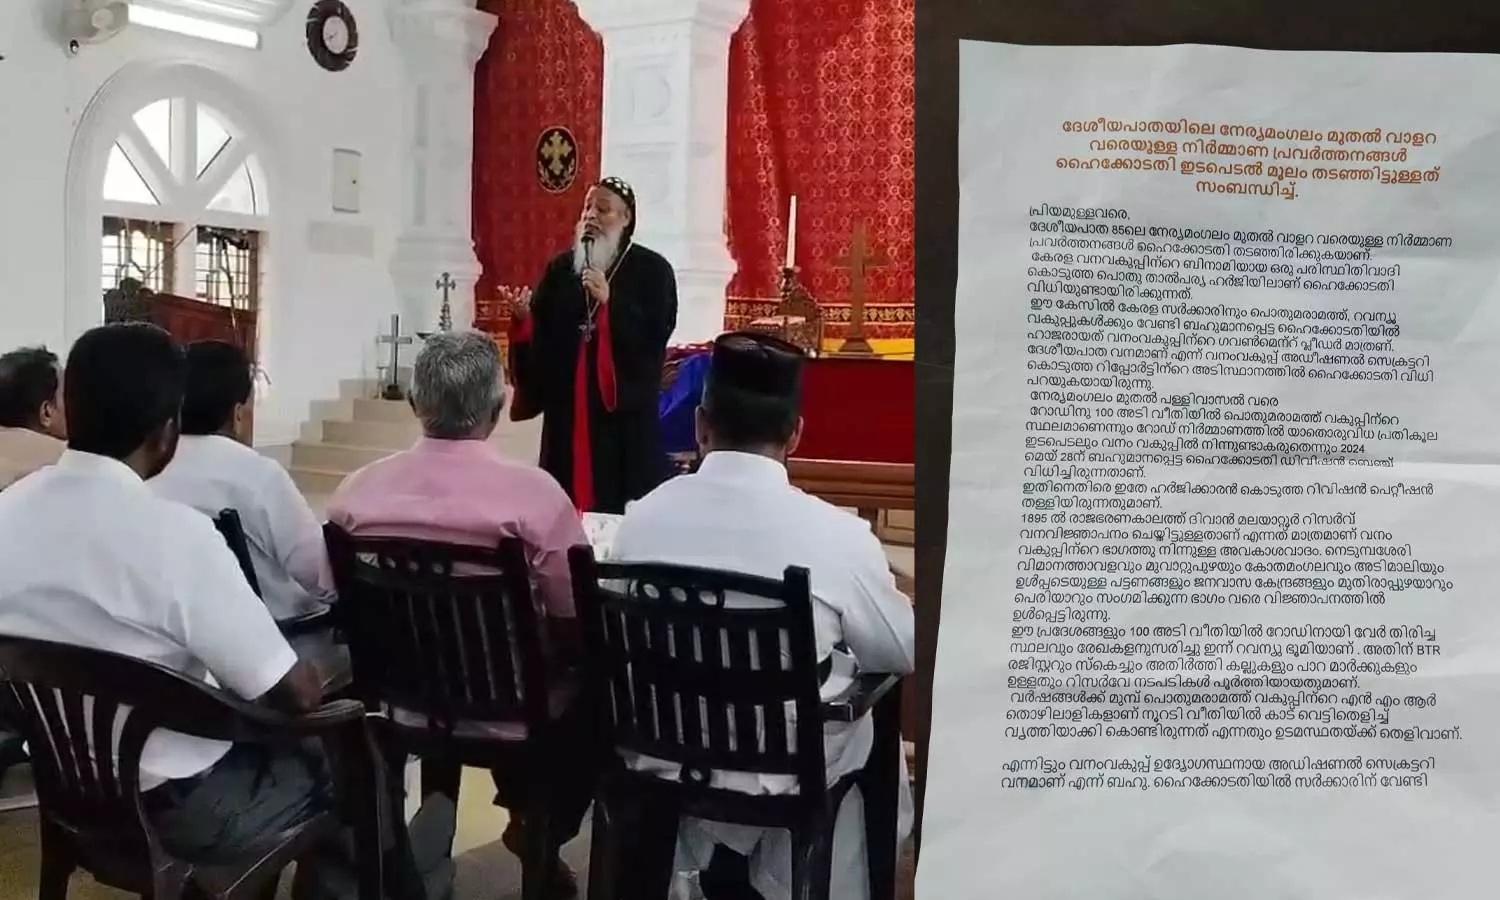 ദേശീയപാതയിലെ നേര്യമംഗലം മുതൽ വാളറ
വരെയുള്ള നിർമ്മാണ പ്രവർത്തനങ്ങൾ
ഹൈക്കോടതി ഇടപെടൽ മൂലം തടഞ്ഞിട്ടുള്ളത്
സംബന്ധിച്ച്.
പ്രിയമുള്ളവരെ,
ദേശീയപാത 85ലെ നേര്യമംഗലം മുതൽ വാളറ വരെയുള്ള നിർമ്മാണ
പ്രവർത്തനങ്ങൾ ഹൈക്കോടതി തടഞ്ഞിരിക്കുകയാണ്.
കേരള വനവകുപ്പിന്റെ ബിനാമിയായ ഒരു പരിസ്ഥിതിവാദി
കൊടുത്ത പൊതു താൽപര്യ ഹർജിയിലാണ് ഹൈക്കോടതി
വിധിയുണ്ടായിരിക്കുന്നത്.
ഈ കേസിൽ കേരള സർക്കാരിനും പൊതുമരാമത്ത്, റവന്യൂ
വകുപ്പുകൾക്കും വേണ്ടി ബഹുമാനപ്പെട്ട ഹൈക്കോടതിയിൽ
ഹാജരായത് വനംവകുപ്പിന്റെ ഗവൺമെന്റ് പ്ലീഡർ മാത്രണ്.
ദേശീയപാത വനമാണ് എന്ന് വനംവകുപ്പ് അഡീഷണൽ സെക്രട്ടറി
കൊടുത്ത റിപ്പോർട്ടിന്റെ അടിസ്ഥാനത്തിൽ ഹൈക്കോടതി വിധി
പറയുകയായിരുന്നു.
നേര്യമംഗലം മുതൽ പള്ളിവാസൽ വരെ
റോഡിനു 100 അടി വീതിയിൽ പൊതുമരാമത്ത് വകുപ്പിന്റെ
സ്ഥലമാണെന്നും റോഡ് നിർമ്മാണത്തിൽ യാതൊരുവിധ പ്രതികൂല
ഇടപെടലും വനം വകുപ്പിൽ നിന്നുണ്ടാകരുതെന്നും 2024
മെയ് 28ന് ബഹുമാനപ്പെട്ട ഹൈക്കോടതി ഡിവീഷൻ ബെഞ്ച്
വിധിച്ചിരുന്നതാണ്.
ഇതിനെതിരെ ഇതേ ഹർജിക്കാരൻ കൊടുത്ത റിവിഷൻ പെറ്റീഷൻ
തള്ളിയിരുന്നതുമാണ്.
1895 ൽ രാജഭരണകാലത്ത് ദിവാൻ മലയാറ്റൂർ റിസർവ്
വനവിജ്ഞാപനം ചെയ്തിട്ടുള്ളതാണ് എന്നത് മാത്രമാണ് വനം
വകുപ്പിന്റെ ഭാഗത്തു നിന്നുള്ള അവകാശവാദം. നെടുമ്പശേരി
വിമാനത്താവളവും മുവാറ്റുപുഴയും കോതമംഗലവും അടിമാലിയും
ഉൾപ്പടെയുള്ള പട്ടണങ്ങളും ജനവാസ കേന്ദ്രങ്ങളും മുതിരാപ്പുഴയാറും
പെരിയാറും സംഗമിക്കുന്ന ഭാഗം വരെ വിജ്ഞാപനത്തിൽ
ഉൾപ്പെട്ടിരുന്നു.
ഈ പ്രദേശങ്ങളും 100 അടി വീതിയിൽ റോഡിനായി വേർ തിരിച്ച
സ്ഥലവും രേഖകളനുസരിച്ചു ഇന്ന് റവന്യൂ ഭൂമിയാണ് . അതിന് BTR
രജിസ്റ്ററും സ്കെച്ചും അതിർത്തി കല്ലുകളും പാറ മാർക്കുകളും
ഉള്ളതും റിസർവേ നടപടികൾ പൂർത്തിയായതുമാണ്.
വർഷങ്ങൾക്ക് മുമ്പ് പൊതുമരാമത്ത് വകുപ്പിന്റെ എൻ എം ആർ
തൊഴിലാളികളാണ് നൂറടി വീതിയിൽ കാട് വെട്ടിതെളിച്ച്
വൃത്തിയാക്കി കൊണ്ടിരുന്നത് എന്നതും ഉടമസ്ഥതയ്ക്ക് തെളിവാണ്.
എന്നിട്ടും വനംവകുപ്പ് ഉദ്യോഗസ്ഥനായ അഡിഷണൽ സെക്രട്ടറി
വനമാണ് എന്ന് ബഹു. ഹൈക്കോടതിയിൽ സർക്കാരിന് വേണ്ടി